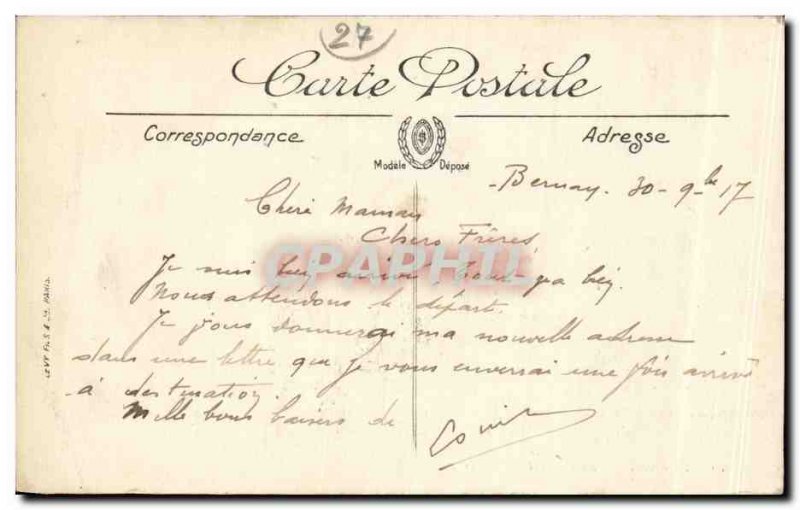 27
Carte Postale
Correspondance
Adresse
Modèle Déposé
LEVY FILS & Cie PARIS.
Bernay, 30 - 9bre 17
Chère Maman
Chers Frères,
CPAPHIL
Je suis bien arrivé, tout va bien.
Nous attendons le départ.
Je vous donnerai ma nouvelle adresse
dans une lettre que je vous enverrai une fois arrivé
à destination.
Mille bons baisers de